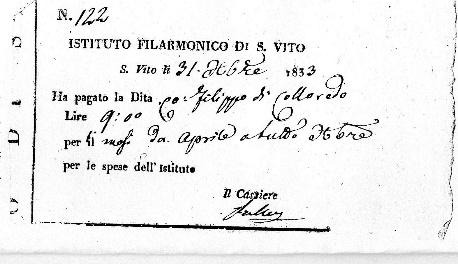 N. 122
ISTITUTO FILARMONICO DI S. VITO
S. Vito li 31. Xbre 1833
Ha pagato la Dita Co: Filippo di Colloredo
Lire 9:00
per li mesi da Aprile a tutto Xbre
per le spese dell'Istituto
Il Cassiere